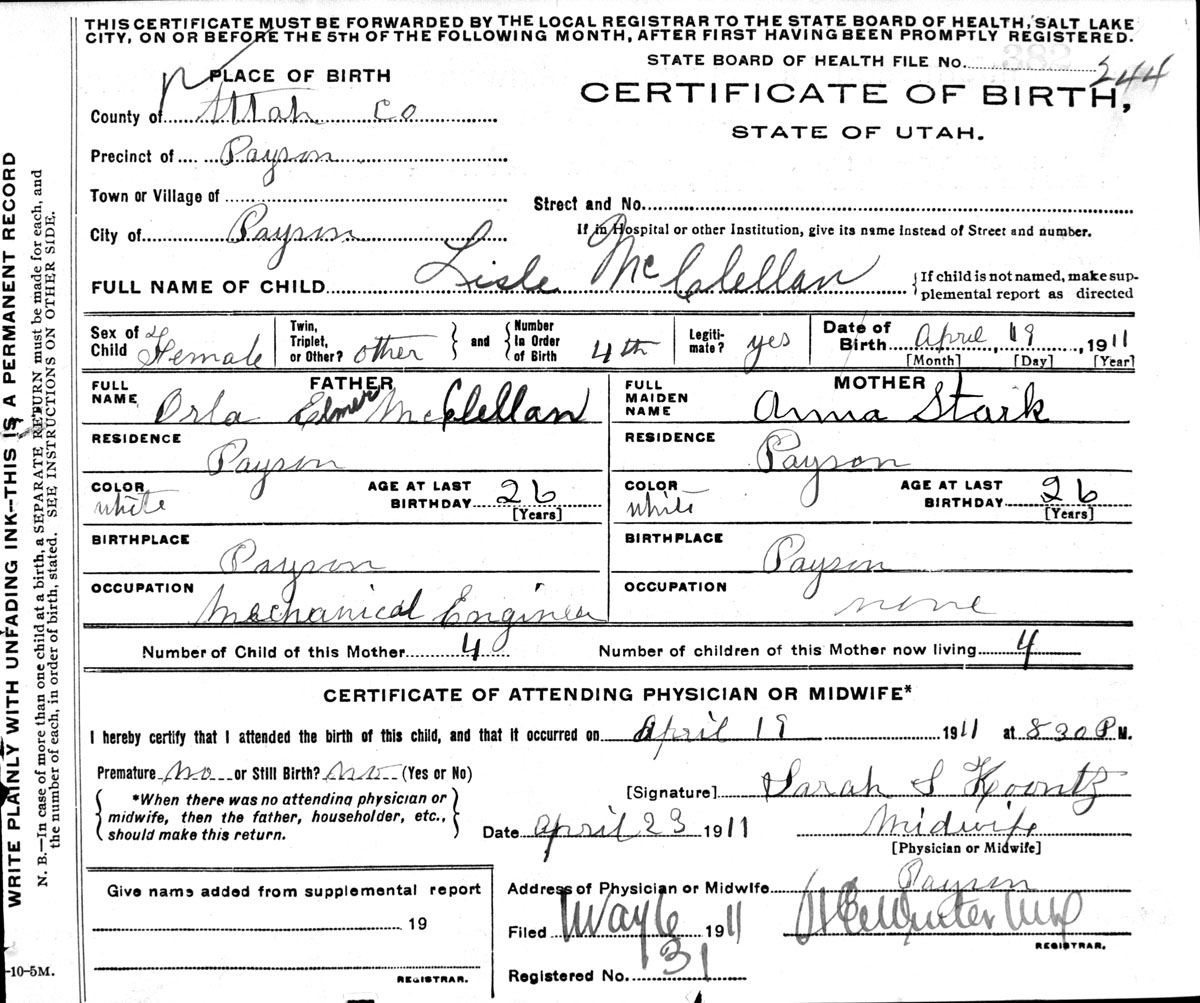 THIS CERTIFICATE MUST BE FORWARDED BY THE LOCAL REGISTRAR TO THE STATE BOARD OF HEALTH, SALT LAKE
CITY, ON OR BEFORE THE 5TH OF THE FOLLOWING MONTH, AFTER FIRST HAVING BEEN PROMPTLY REGISTERED.
STATE BOARD OF HEALTH FILE No. 244
382
CERTIFICATE OF BIRTH,
STATE OF UTAH.
PLACE OF BIRTH
County of Utah Co
Precinct of Payson
Town or Village of
Street and No.
City of Payson
If in Hospital or other Institution, give its name instead of Street and number.
FULL NAME OF CHILD Lisle McClellan {If child is not named, make sup-
plemental report as directed
Sex of Child Female
Twin, Triplet, or Other? other } and { Number In Order of Birth 4th
Legiti-mate? yes
Date of Birth April, 19, 1911
[Month] [Day] [Year]
FATHER
FULL NAME Orla Elmer McClellan
RESIDENCE
Payson
COLOR white AGE AT LAST BIRTHDAY 26
[Years]
BIRTHPLACE
Payson
OCCUPATION
Mechanical Engineer
MOTHER
FULL MAIDEN NAME Anna Stark
RESIDENCE
Payson
COLOR white AGE AT LAST BIRTHDAY 26
[Years]
BIRTHPLACE
Payson
OCCUPATION
none
Number of Child of this Mother 4 Number of children of this Mother now living 4
CERTIFICATE OF ATTENDING PHYSICIAN OR MIDWIFE*
I hereby certify that I attended the birth of this child, and that it occurred on April 19 1911 at 8 30 P M.
Premature No or Still Birth? No (Yes or No)
{ *When there was no attending physician or
midwife, then the father, householder, etc.,
should make this return. }
[Signature] Sarah S Koontz
Date April 23 1911 Midwife
[Physician or Midwife]
Give name added from supplemental report
19
REGISTRAR.
Address of Physician or Midwife Payson
Filed May 6 1911
REGISTRAR.
Registered No. 31
WRITE PLAINLY WITH UNFADING INK--THIS IS A PERMANENT RECORD
N. B.—In case of more than one child at a birth, a SEPARATE RETURN must be made for each, and
the number of each, in order of birth, stated. SEE INSTRUCTIONS ON OTHER SIDE.
-10-5M.